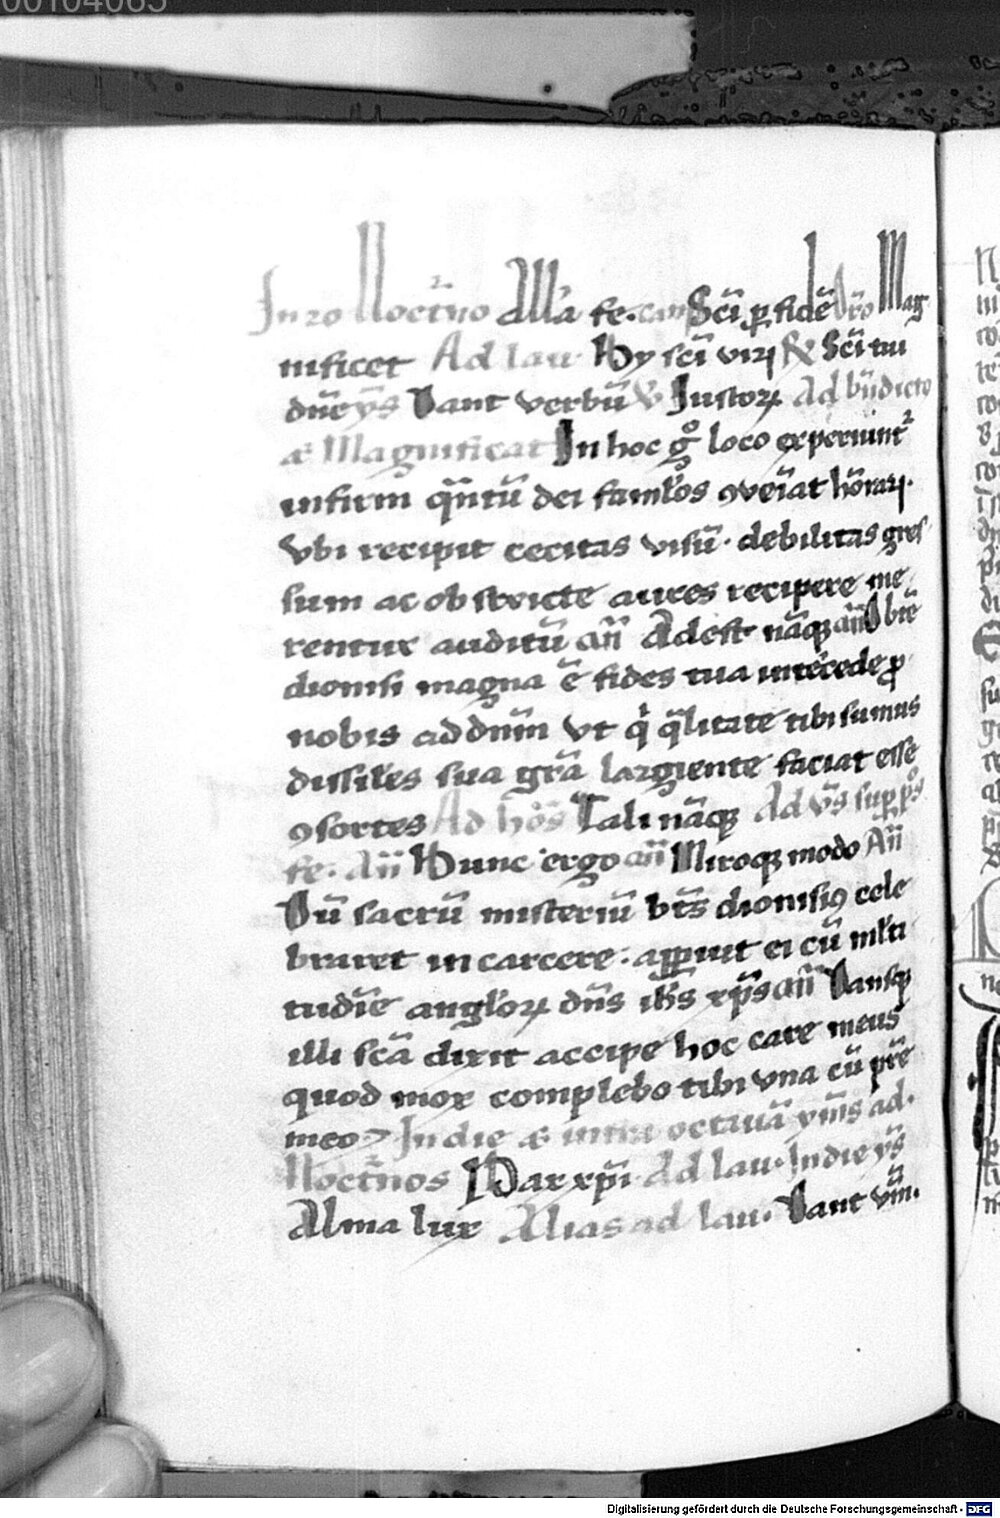 00104065
In 2o Noct̄no Alīa fe. can Scī ꝑ fidē Or̄o Mag
nificet Ad lau Hy scī viri ℟ Scī tui
dn̄e ys̄ Dant verbū ℣ Justoꝝ Ad bn̄dicto
et Magnificat In hoc gͦ loco experiunt᷑
infirmi qn̄tū dei famlo̅s ꝯveīat hōrari.
Vbi recipit cecitas visū. debilitas gres
sum ac obstricte aures recipere me
rentur auditū an̄ Adest nāqꝫ an̄ O btē
dionisi magna ē fides tua intēcede ꝓ
nobis ad dn̄m vt q̇ q̄litate tibi sumus
dissiles̄ sua grā largiente faciat esse
ꝯsortes Ad hōs Tali nāqꝫ Ad vs̄ supꝑ ps̄
fe. An̄ Hunc ergo an̄ Miroqꝫ modo An̄
Dū sacrū misteriū bts̄ dionisiꝰ cele
braret in carcere. apparuit ei cū ml̄ti
tudīe angloꝝ̄ dn̄s ihs̄ xps̄ an̄ Dansqꝫ
illi scā dixit accipe hoc care meus
quod mox complebo tibi vna cū pr̄e
meo In die et infra octauā ym̄s ad.
Noct̄nos Pax xp̄i Ad lau. In die ys̄
Alma lux Alias ad lau. Dant vm̄.
Digitalisierung gefördert durch die Deutsche Forschungsgemeinschaft - DFG